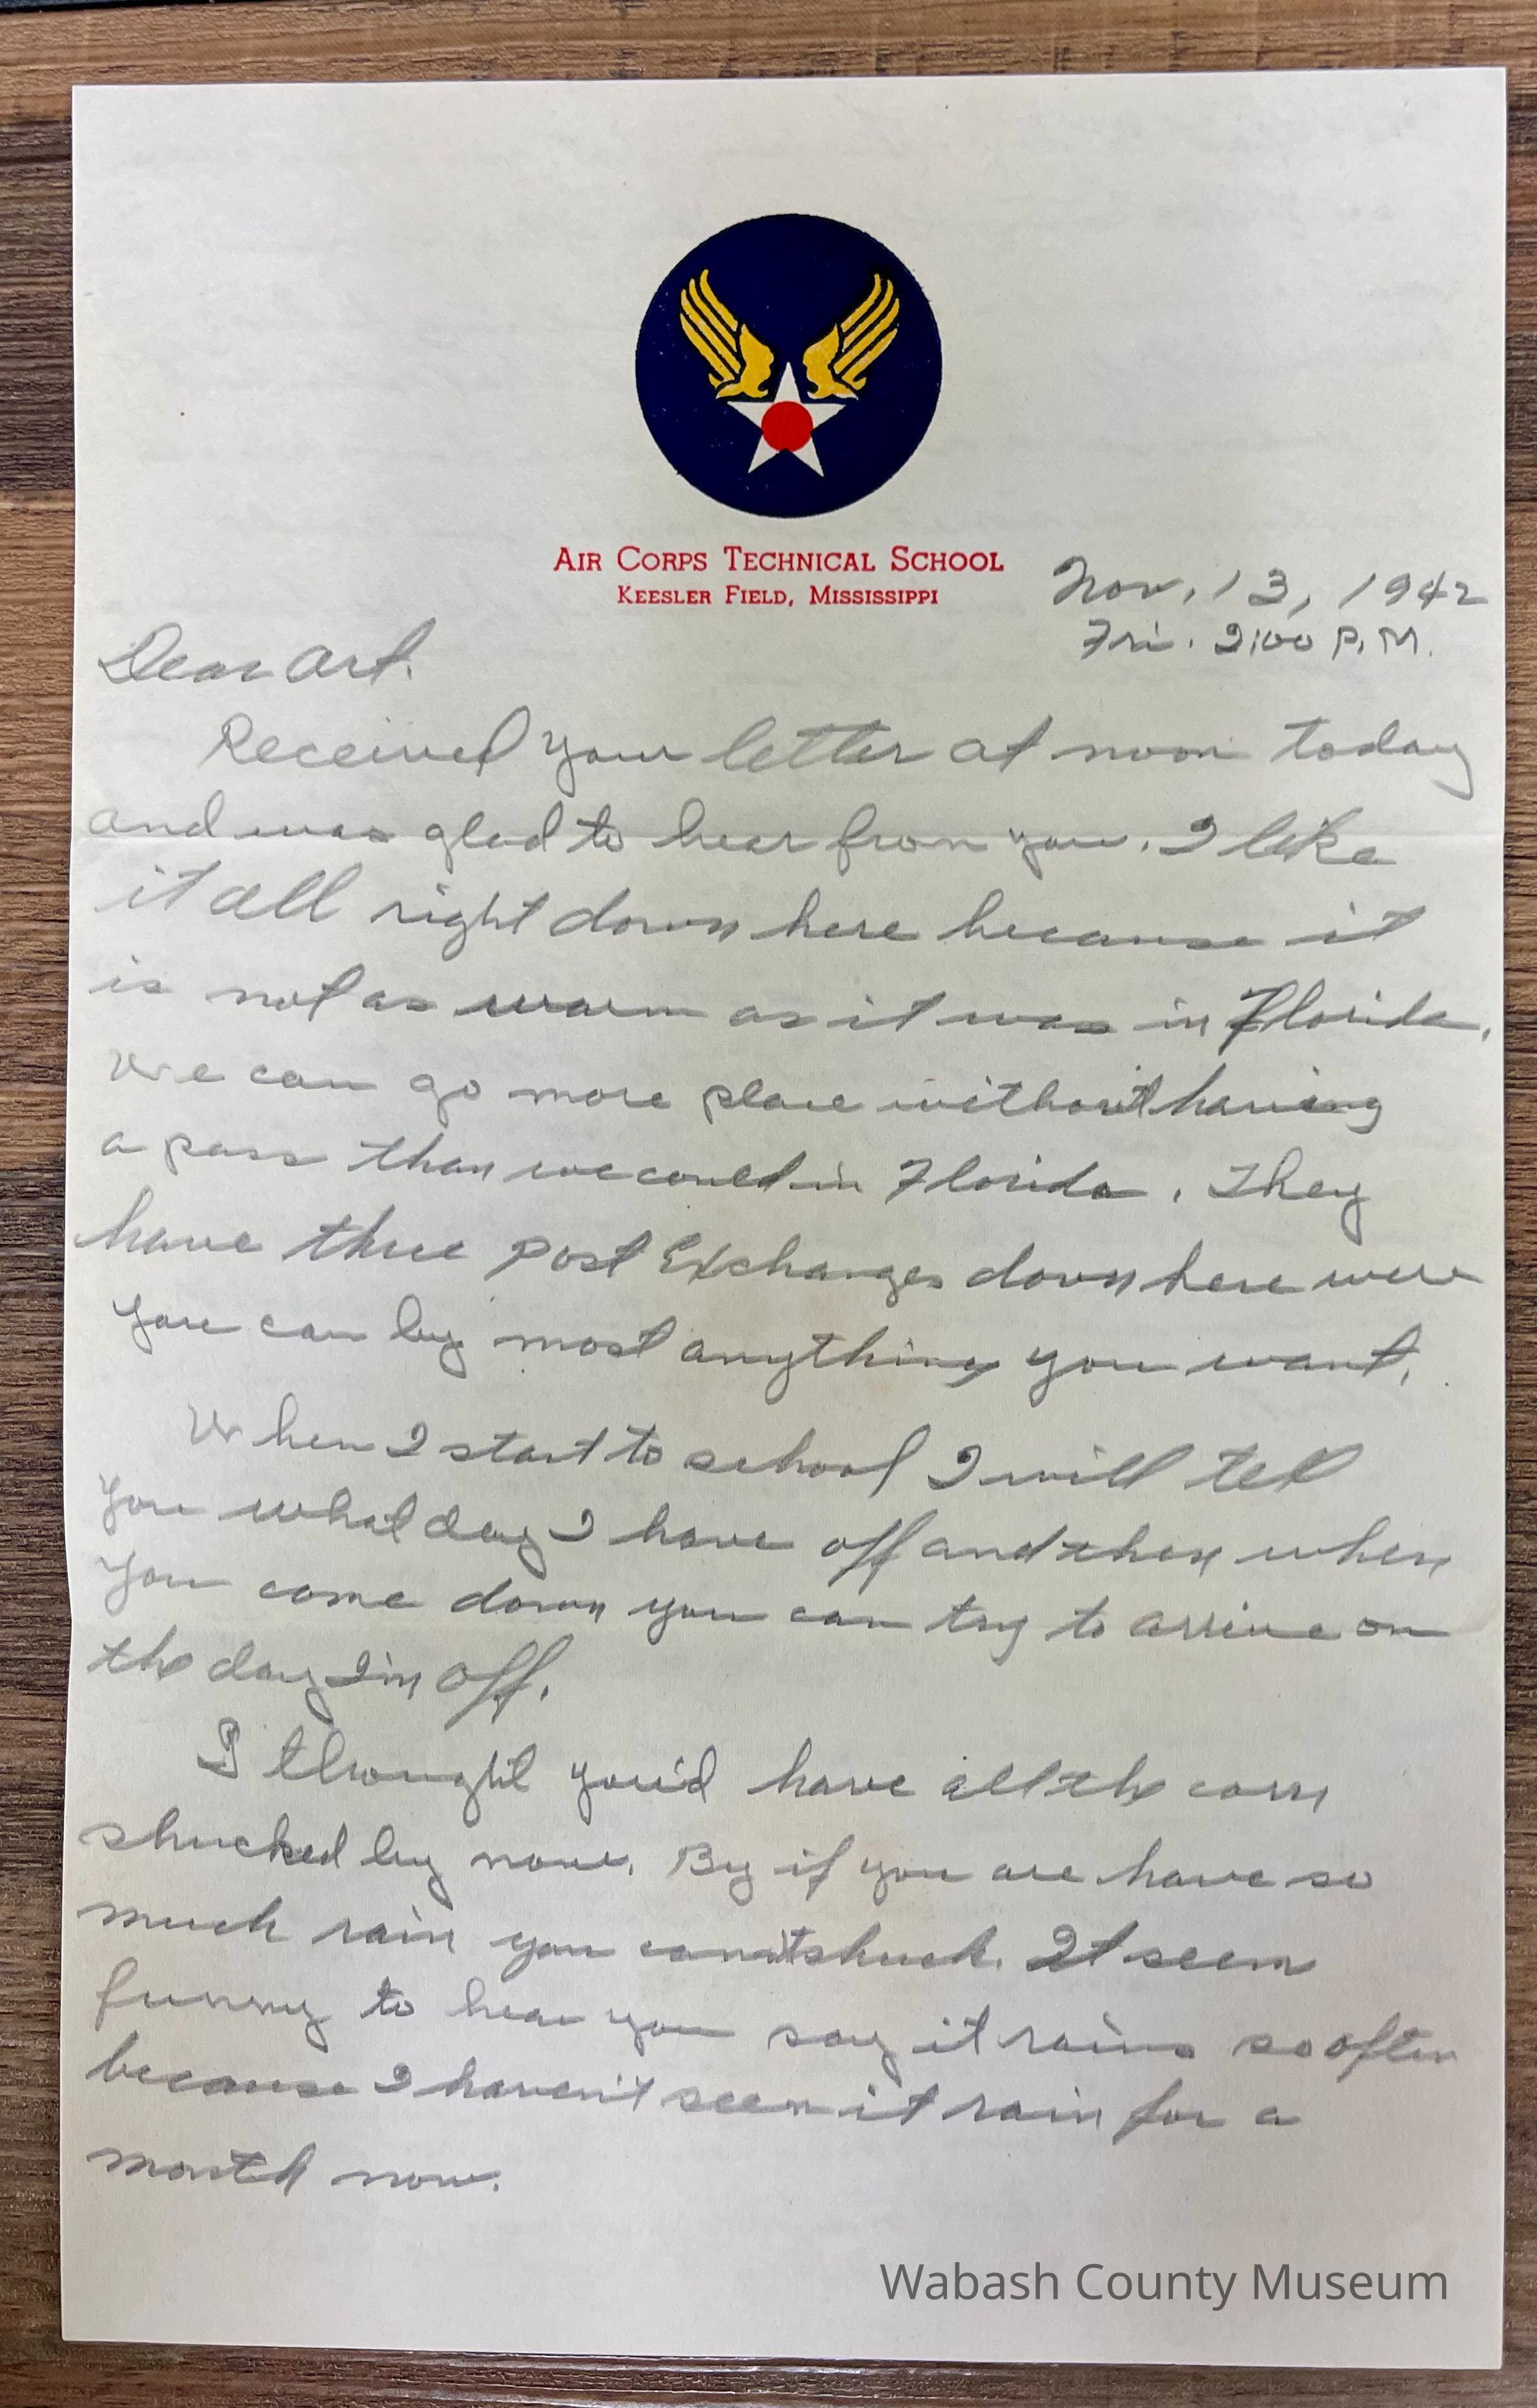 AIR CORPS TECHNICAL SCHOOL
KEESLER FIELD, MISSISSIPPI
Nov. 13, 1942
Fri. 2:00 P.M.
Dear Art.
Received your letter at noon today
and was glad to hear from you. I like
it all right down here because it
is not as warm as it was in Florida.
We can go more place without having
a pass than we could in Florida. They
have three Post Exchanges down here were
you can by most anything you want.
When I start to school I will tell
you what day I have off and then when
you come down you can try to arrive on
the day I'm off.
I thought you'd have all the corn
shucked by now. By if you are have so
much rain you can't shuck. It seem
funny to hear you say it rains so often
because I haven't seen it rain for a
month now.
Wabash County Museum